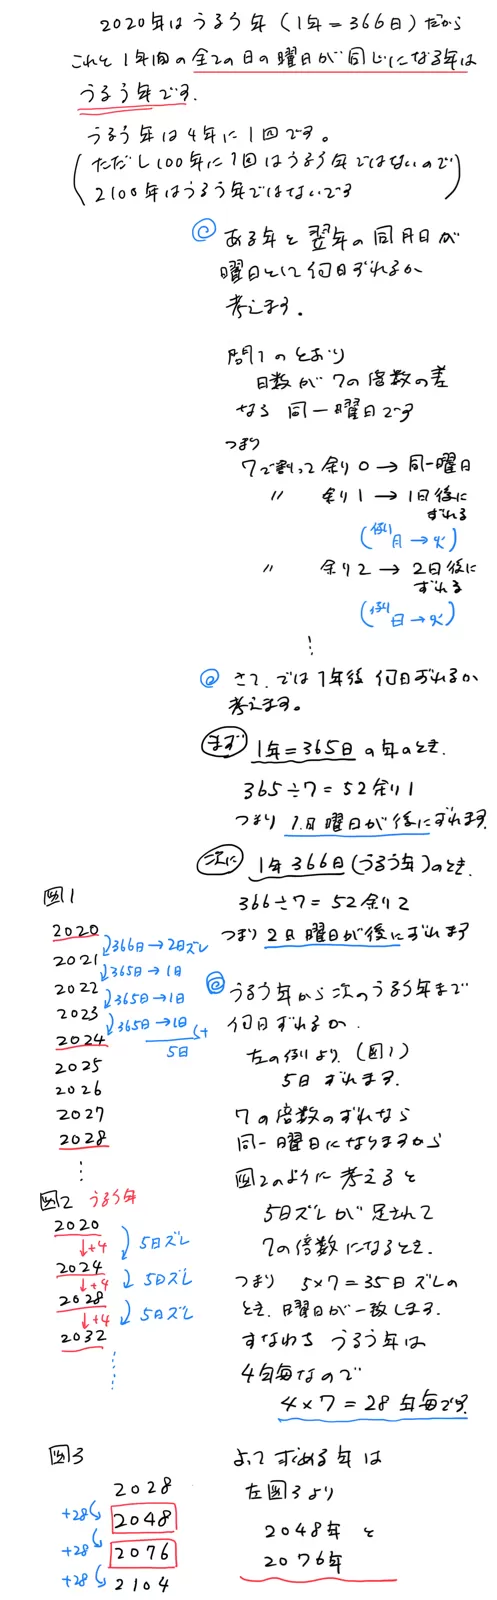 2020年はうるう年(1年=366日)だから
これと1年間の全ての日の曜日が同じになる年は
うるう年です.
うるう年は4年に1回です。
(ただし100年に1回はうるう年ではないので
2100年はうるう年ではないです)
◎ ある年と翌年の同月日が
曜日として何日ずれるか
考えます.
問1のとおり
日数が7の倍数の差
なら 同一曜日です
つまり
7で割って余り0→同一曜日
〃 余り1→1日後に
ずれる
(例 月→火)
〃 余り2→2日後に
ずれる
(例 日→火)
⋮
◎ さて.では1年後 何日ずれるか
考えます。
まず 1年=365日の年のとき.
365÷7=52余り1
つまり 1日曜日が後にずれます.
次に 1年366日(うるう年)のとき.
366÷7=52余り2
つまり 2日曜日が後にずれます
図1
2020
366日→2日ズレ
2021
365日→1日
2022
365日→1日
2023
365日→1日
2024
+
5日
2025
2026
2027
2028
⋮
◎ うるう年から次のうるう年まで
何日ずれるか.
左の例より.(図1)
5日 ずれます.
7の倍数のずれなら
同一曜日になりますから
図2のように考えると
5日ズレが足されて
7の倍数になるとき.
つまり 5×7=35日ズレの
とき.曜日が一致します.
すなわち うるう年は
4年毎なので
4×7=28年毎です
図2 うるう年
2020
+4 5日ズレ
2024
+4 5日ズレ
2028
+4 5日ズレ
2032
⋮
図3
2028
+28
2048
+28
2076
+28
2104
よって求める年は
左図3より
2048年と
2076年